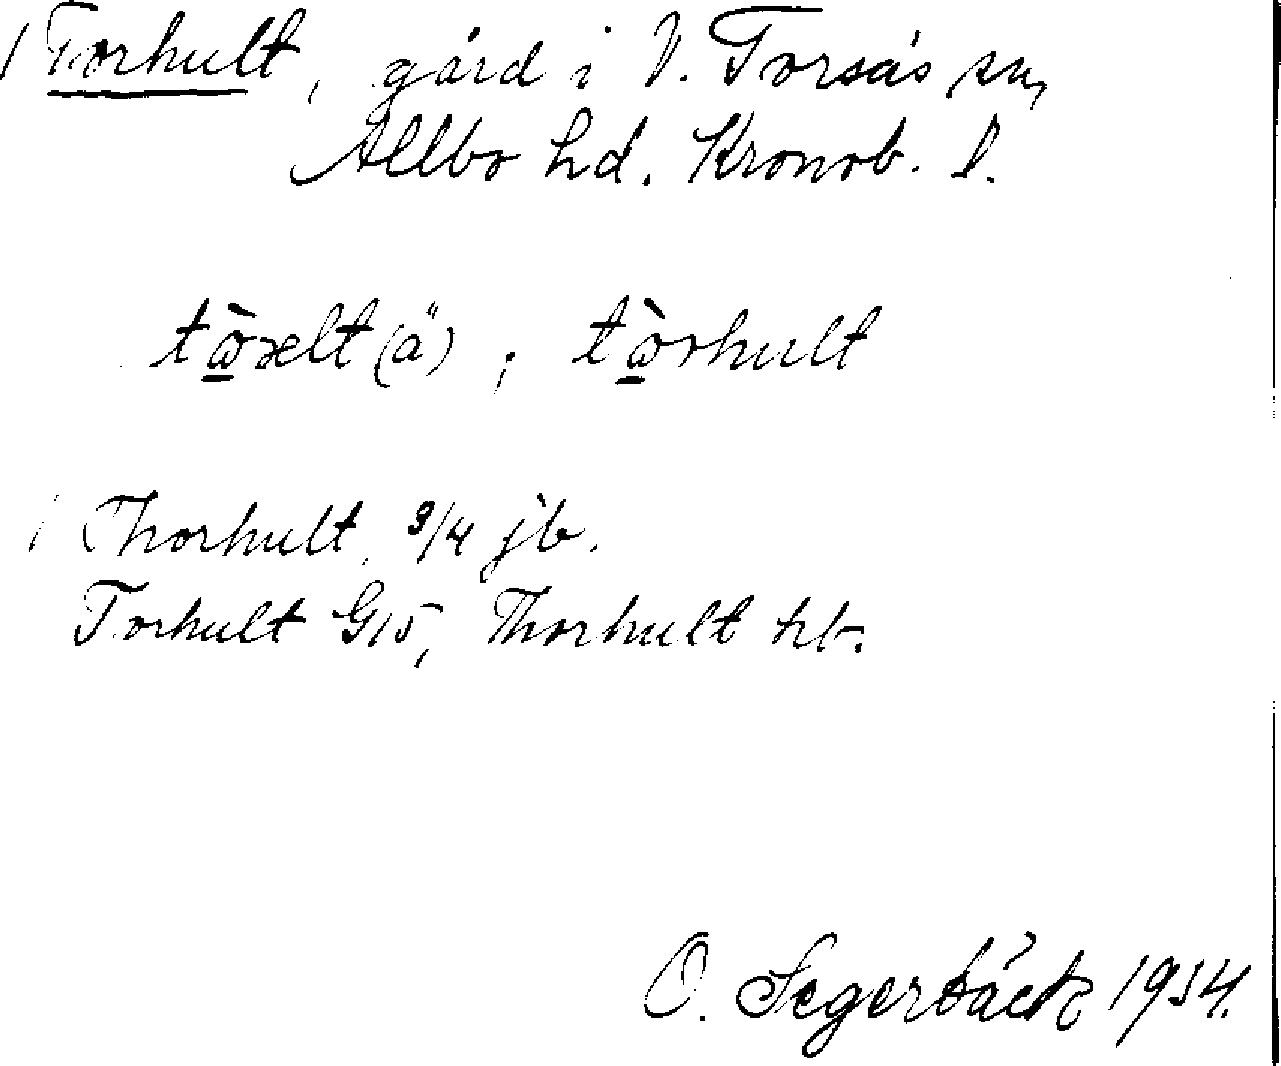 Torhult, gård i V. Torsås sn,
Allbo hd. Kronob. l.
tὼ̲rælt (ä) ; tὼ̲rhult
Thorhult, 3/4 jb.
Torhult G15, Thorhult hk.
O. Segerbäck 1934.